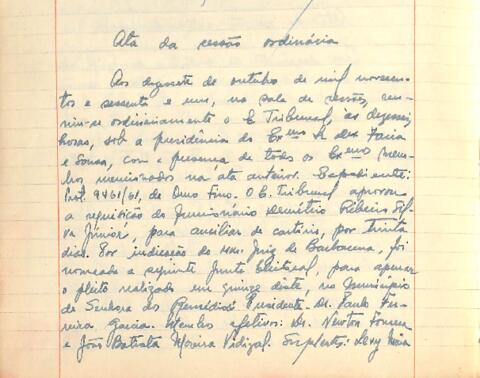 Ata da sessão ordinária
Aos dezessete de outubro de mil novecen-
tos e sessenta e um, na sala de sessões, reu-
niu-se ordinariamente o E. Tribunal, às dezesseis
horas, sob a presidência do Exmo Sr. Des. Faria
e Sousa, com a presença de todos os Exmos mem-
bros mencionados na ata anterior. Expediente:
9461/61, de Ouro Fino. O E. Tribunal aprovou
a requisição do funcionário Demétrio Ribeiro Sil-
va Júnior, para auxiliar de cartório, por trinta
dias. Por indicação do MM. Juiz de Barbacena, foi
nomeada a seguinte Junta Eleitoral, para apurar
o pleito realizado em quinze deste, no Município
de Senhora dos Remédios: Presidente - Dr. Paulo Fer-
reira Garcia. Membros efetivos: Dr. Newton
e João Batista Moreira Vidigal. Suplente: Levy